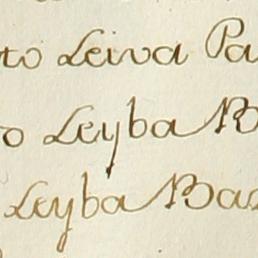 to Leiva Pa
o Leyba B
Leyba Bas